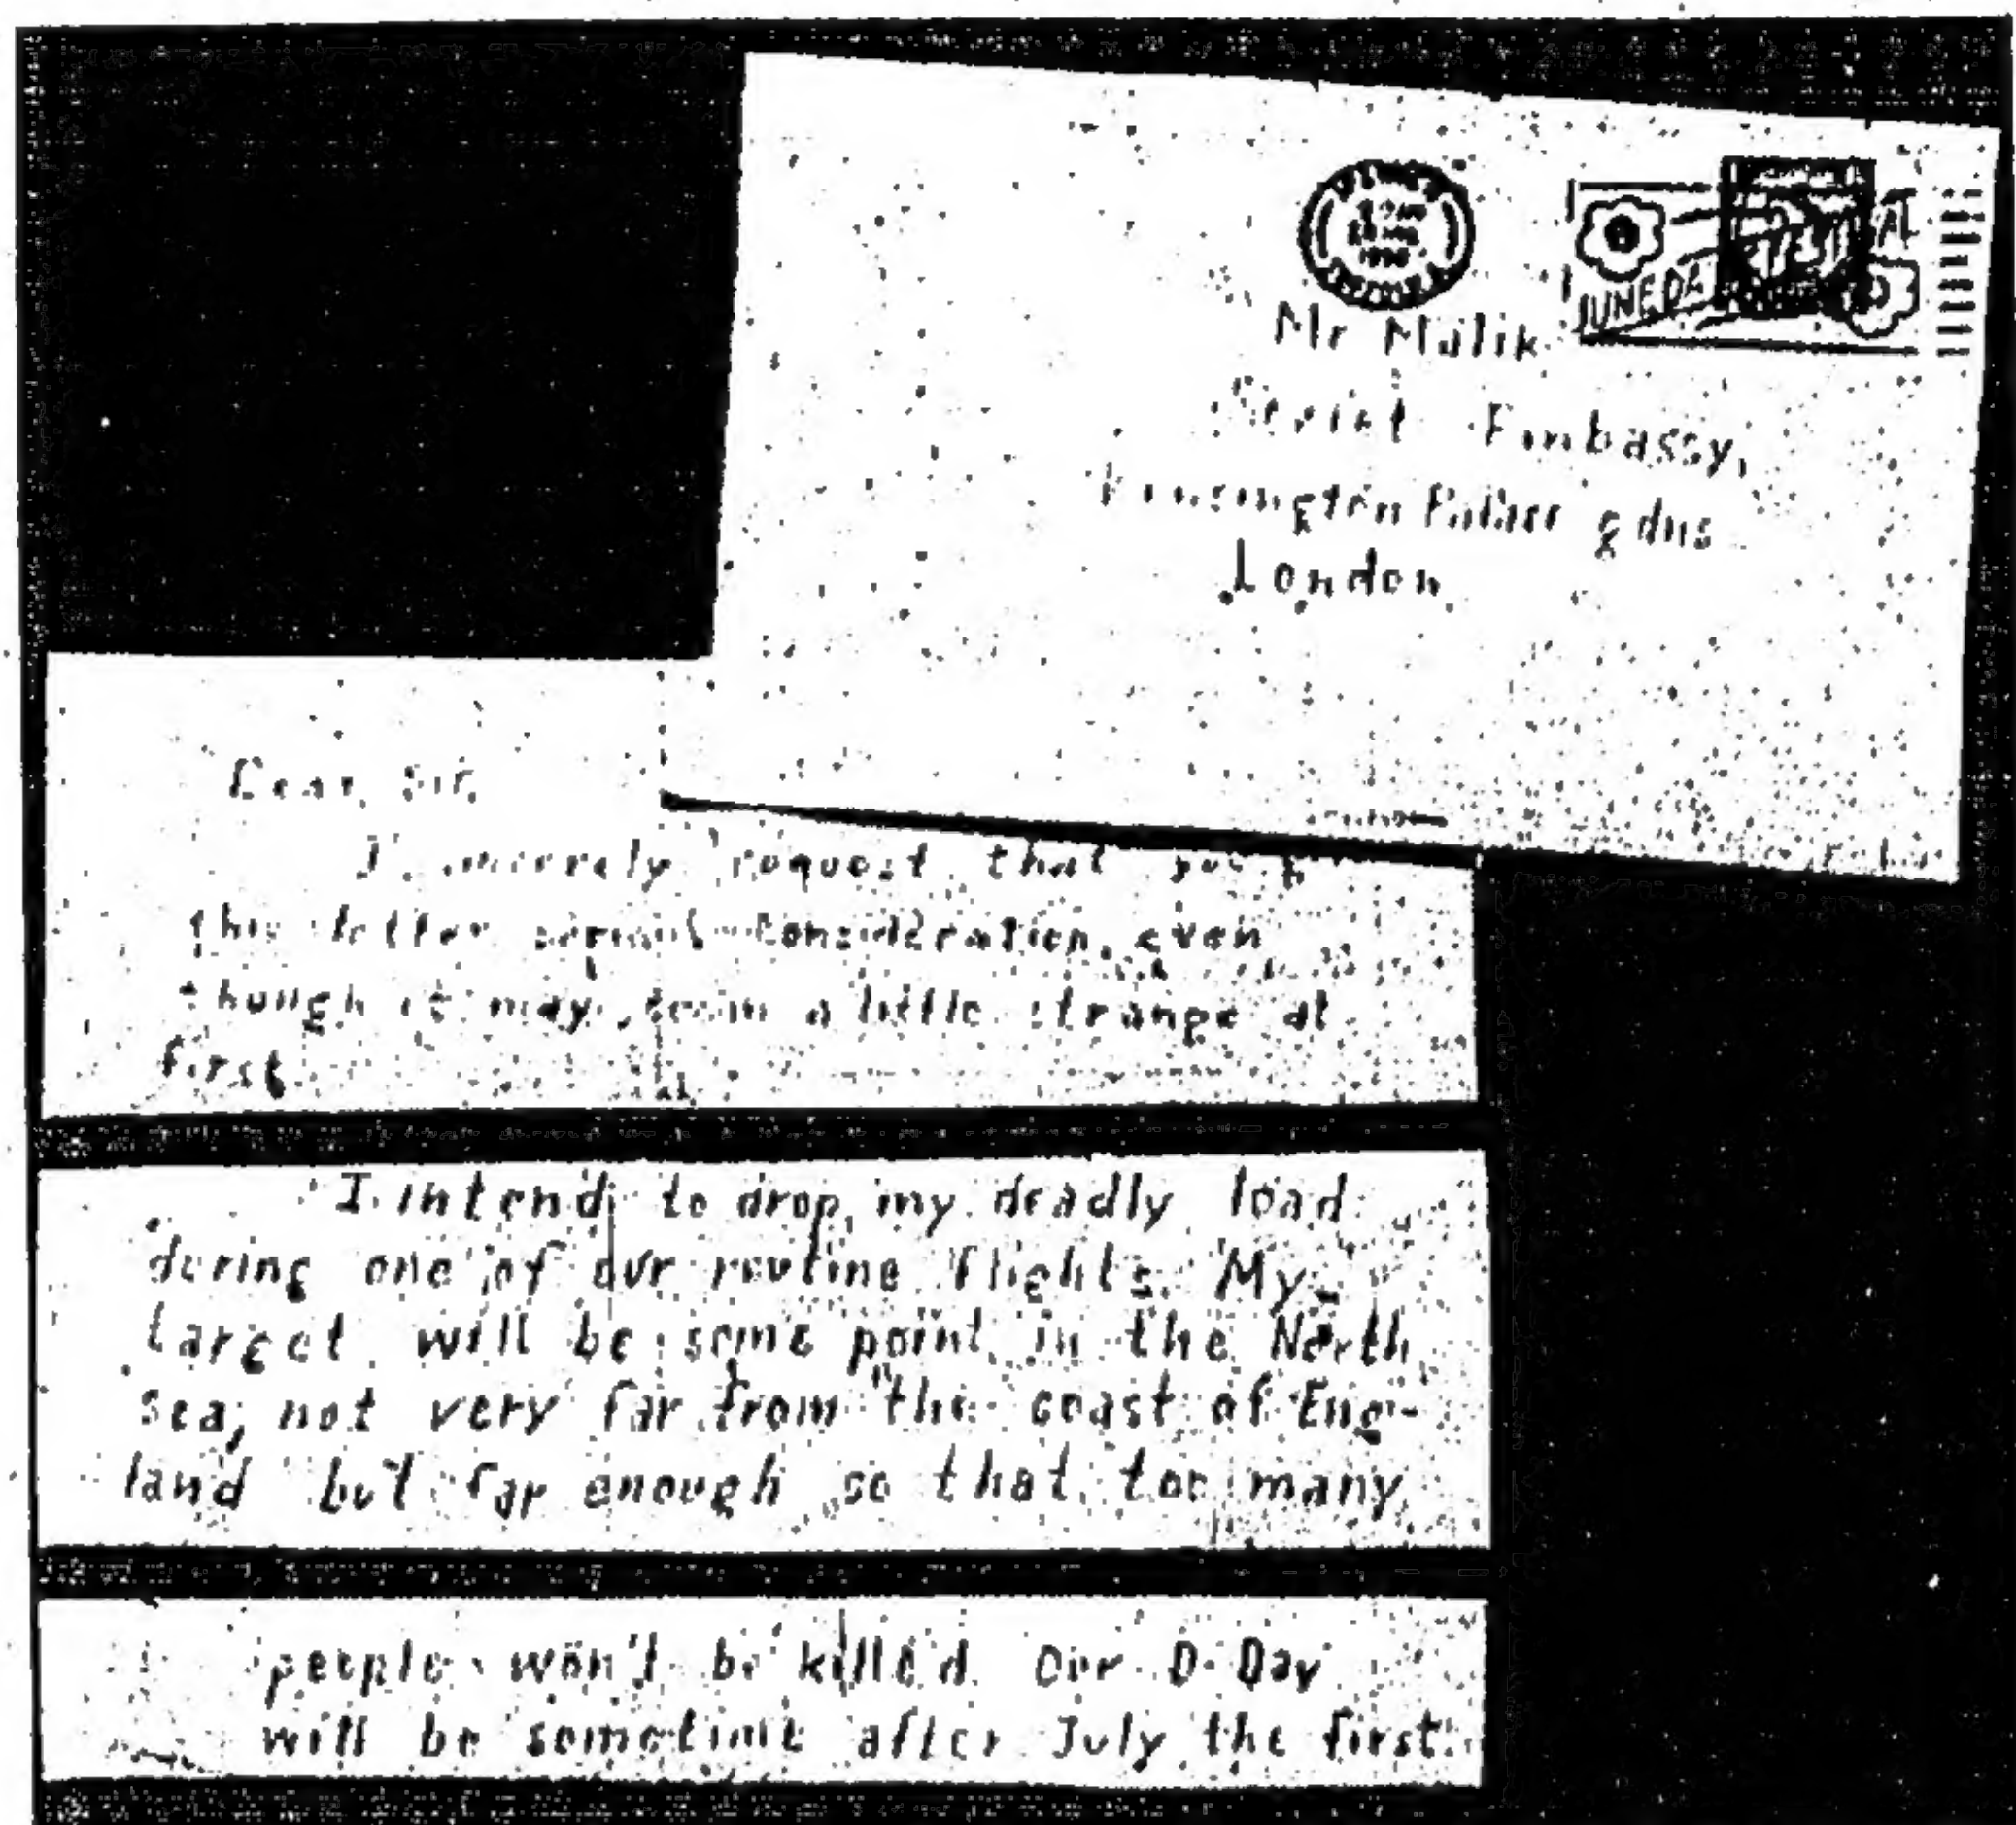 JUNE DA
AL
Mr Malik
Soviet Embassy,
Kensington Palace gdns
London
Dear Sir,
I sincerely request that you
this letter serious consideration, even
though it may seem a little strange at
first
I intend to drop my deadly load
during one of our routine flights. My
target will be some point in the North
sea, not very far from the coast of Eng-
land but far enough so that too many
people won't be killed. Our D-Day
will be sometime after July the first.